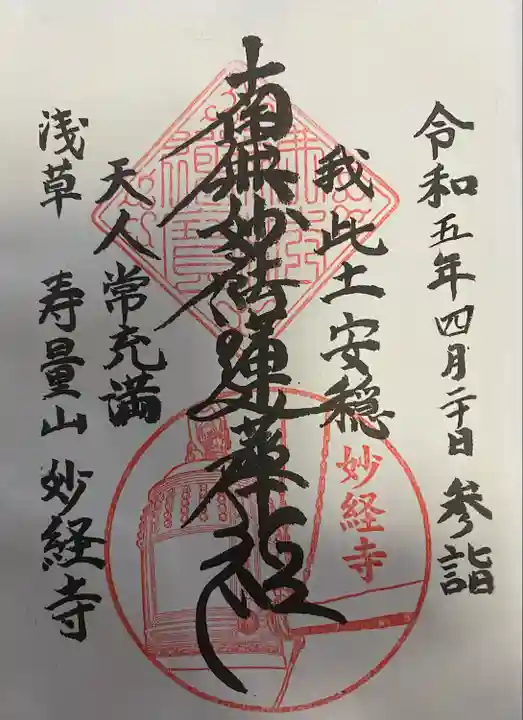 令和五年四月二十日 参詣
我此土安穏
妙経寺
南無妙法蓮華経
天人常充満
浅草 寿量山 妙経寺